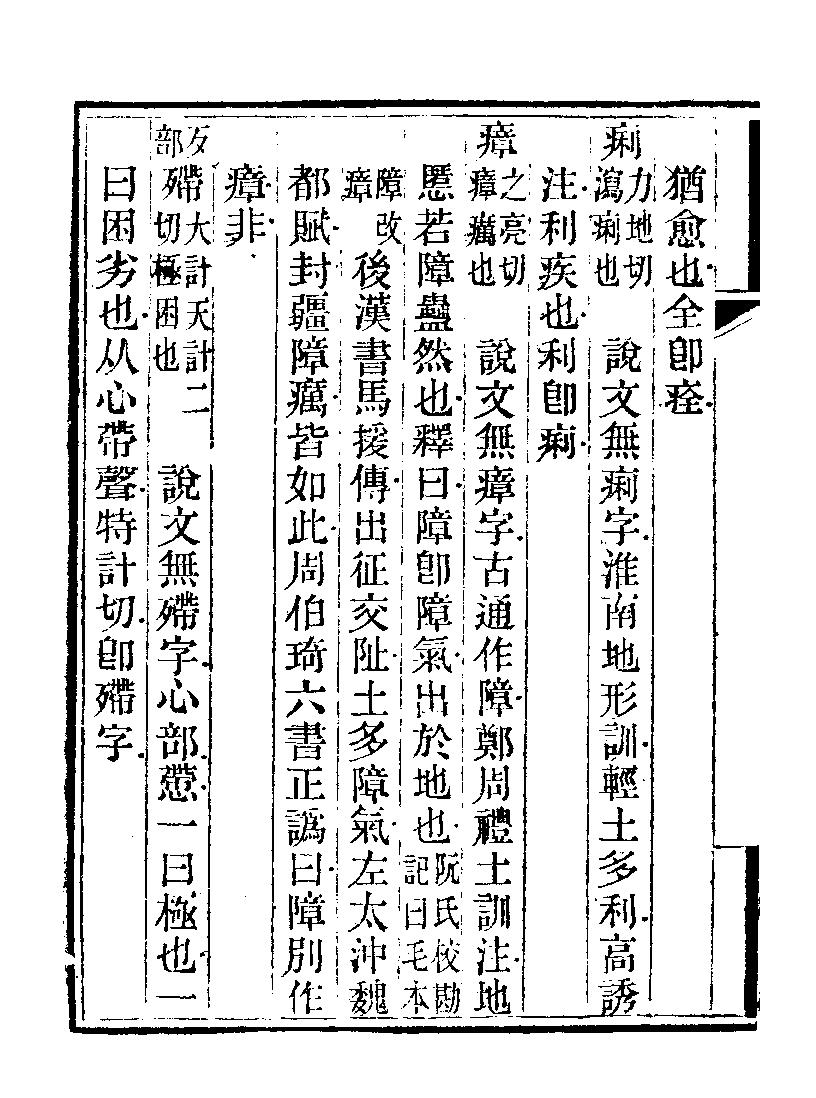 猶愈也全卽痊
痢力地切瀉痢也說文無痢字淮南地形訓輕土多利高誘
注利疾也利卽痢
瘴之亮切瘴癘也說文無瘴字古通作障鄭周禮土訓注地
慝若障蠱然也釋曰障卽障氣出於地也阮氏校勘記曰毛本
障改瘴後漢書馬援傳出征交阯土多障氣左太沖魏
都賦封疆障癘皆如此周伯琦六書正譌曰障別作
瘴非
歹部㿃大計天計二切極困也說文無㿃字心部懘一曰極也一
曰困劣也从心帶聲特計切卽㿃字